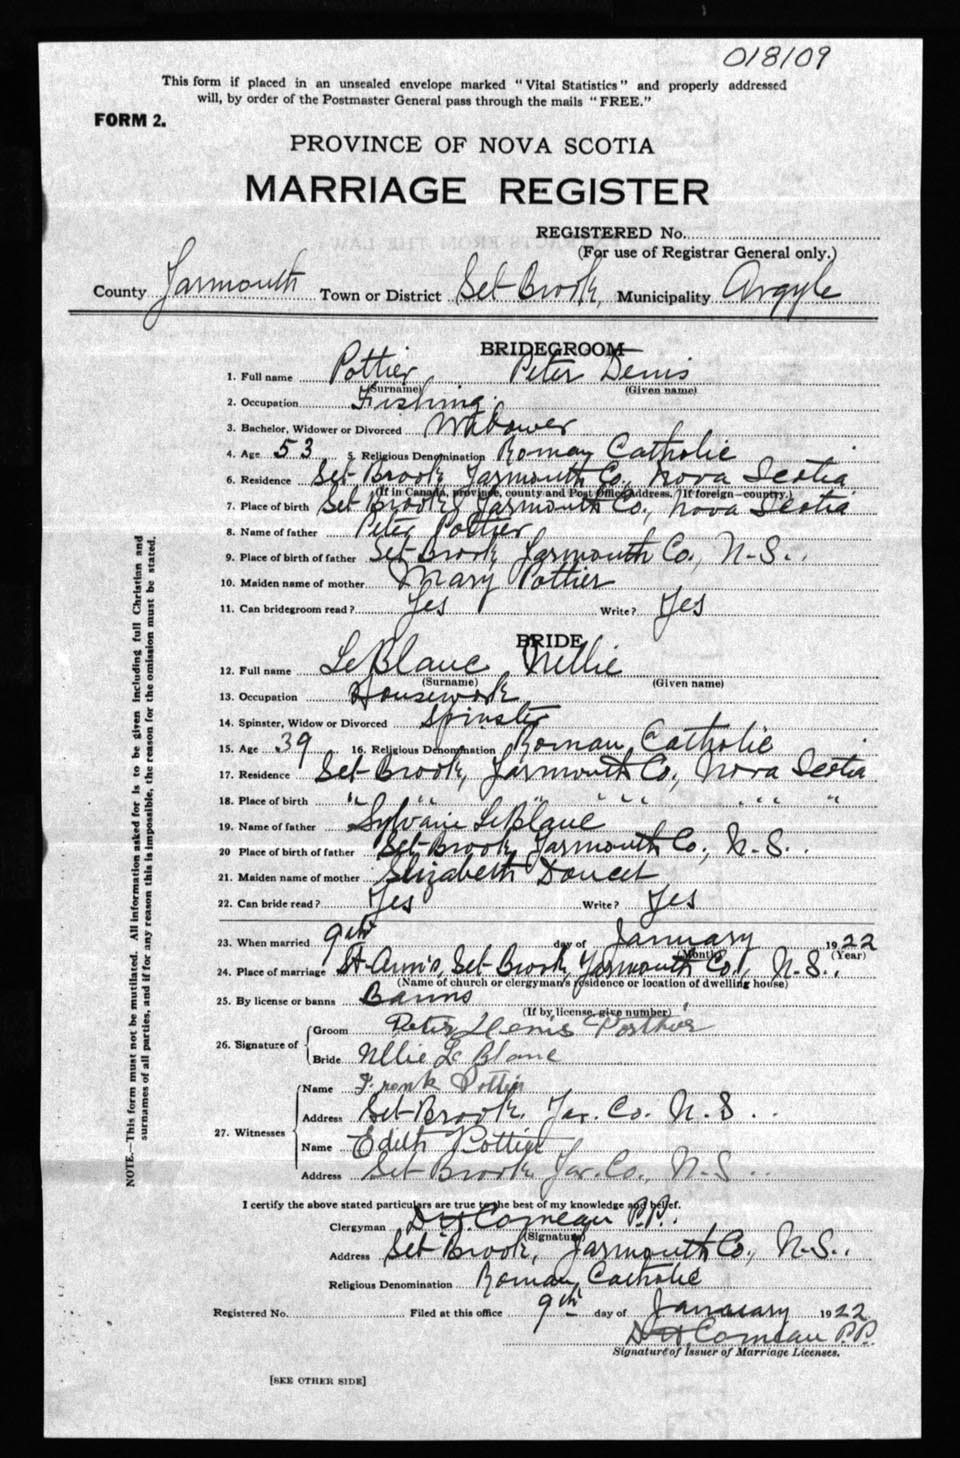 018109
This form if placed in an unsealed envelope marked "Vital Statistics" and properly addressed
will, by order of the Postmaster General pass through the mails "FREE."
FORM 2.
PROVINCE OF NOVA SCOTIA
MARRIAGE REGISTER
REGISTERED No.
(For use of Registrar General only.)
County Yarmouth Town or District Sel-Brook, Municipality Argyle
BRIDEGROOM
1. Full name Pottier Peter Denis
(Surname) (Given name)
2. Occupation Fishing
3. Bachelor, Widower or Divorced Widower
4. Age 53 5. Religious Denomination Roman Catholic
6. Residence Sel-Brook Yarmouth Co., Nova Scotia
(If in Canada, province, county and Post Office Address. If foreign—country.)
7. Place of birth Sel-Brook Yarmouth Co., Nova Scotia
8. Name of father Peter Pottier
9. Place of birth of father Sel-Brook Yarmouth Co., N.S.
10. Maiden name of mother Mary Pottier
11. Can bridegroom read? Yes Write? Yes
BRIDE
12. Full name LeBlanc Nellie
(Surname) (Given name)
13. Occupation Housework
14. Spinster, Widow or Divorced Spinster
15. Age 39 16. Religious Denomination Roman Catholic
17. Residence Sel-Brook, Yarmouth Co., Nova Scotia
18. Place of birth " " " " " " "
19. Name of father Sylvain LeBlanc
20 Place of birth of father Sel-Brook, Yarmouth Co., N.S.
21. Maiden name of mother Elizabeth Doucet
22. Can bride read? Yes Write? Yes
23. When married 9th day of January 1922
(Month) (Year)
24. Place of marriage St-Ann's, Sel-Brook, Yarmouth Co., N.S.
(Name of church or clergyman's residence or location of dwelling house)
25. By license or banns Banns
(If by license, give number)
26. Signature of Groom Peter Denis Potthier
Bride Nllie Le Blanc
27. Witnesses Name Frank Pottier
Address Sel-Brook, Yar. Co. N.S.
Name Edith Pottier
Address Sel-Brook, Yar. Co., N.S.
I certify the above stated particulars are true to the best of my knowledge and belief.
Clergyman D.H. Comeau P.P.
(Signature)
Address Sel-Brook, Yarmouth Co., N.S.
Religious Denomination Roman Catholic
Registered No. Filed at this office 9th day of January 1922
D.H. Comeau P.P.
Signature of Issuer of Marriage Licenses.
[SEE OTHER SIDE]
NOTE.—This form must not be mutilated. All information asked for is to be given including full Christian and
surnames of all parties, and if for any reason this is impossible, the reason for the omission must be stated.